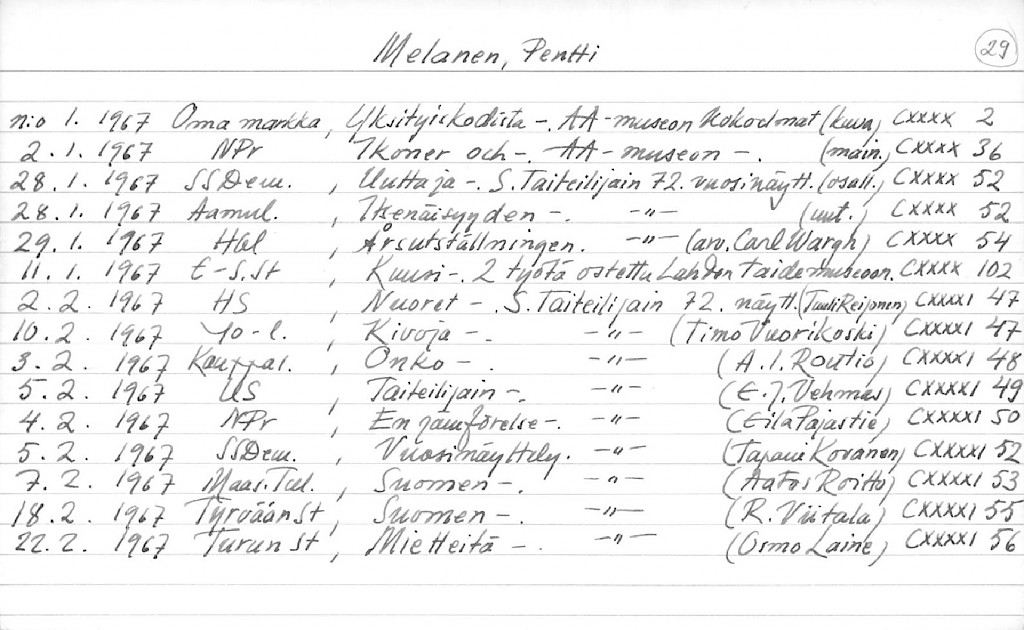 Melanen, Pentti
29
n:o 1. 1967 Oma markka, Yksityiskodista -. AA-museon kokoelmat (kuva) CXXXX 2
2.1. 1967 NPr Ikoner och -. AA-museon -. (main.) CXXXX 36
28.1. 1967 SSDem. , Uutta ja -. S.Taiteilijain 72. vuosinäytt. (osall.) CXXXX 52
28.1. 1967 Aamul. , Itsenäisyyden -. -"- (uut.) CXXXX 52
29.1. 1967 Hbl , Årsutställningen. -"- (arv. Carl Wargh) CXXXX 54
11.1. 1967 E-S.St , Kuusi -. 2 työtä ostettu Lahden taidemuseoon. CXXXX 102
2.2. 1967 HS , Nuoret -. S.Taiteilijain 72. näytt. (Tuuli Reijonen) CXXXXI 47
10.2. 1967 Yo-l. , Kivoja -. -"- (Timo Vuorikoski) CXXXXI 47
3.2. 1967 Kauppal. , Onko -. -"- (A.I. Routio) CXXXXI 48
5.2. 1967 US , Taiteilijain -. -"- (E.J. Vehmas) CXXXXI 49
4.2. 1967 NPr , En jämförelse -. -"- (Eila Pajastie) CXXXXI 50
5.2. 1967 SSDem. , Vuosinäyttely. -"- (Tapani Kovanen) CXXXXI 52
7.2. 1967 Maas.Tul. , Suomen -. -"- (Aatos Roitto) CXXXXI 53
18.2. 1967 TyrväänSt , Suomen -. -"- (R. Viitala) CXXXXI 55
22.2. 1967 Turun St , Mietteitä -. -"- (Osmo Laine) CXXXXI 56